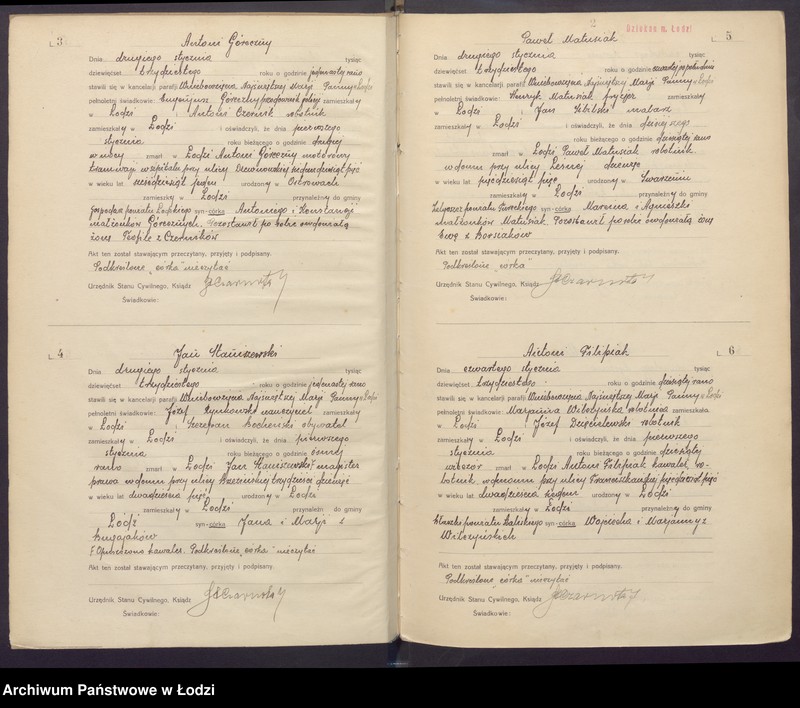 L. 3
Antoni Góreczny
Dnia drugiego stycznia tysiąc
dziewięćset trzydziestego roku o godzinie jedenastej rano
stawili się w kancelarji parafji Wniebowzięcia Najświętszej Marji Panny w Łodzi
pełnoletni świadkowie: Eugenjusz Góreczny przodownik policji zamieszkały
w Łodzi i Antoni robotnik
zamieszkały w Łodzi i oświadczyli, że dnia pierwszego
stycznia roku bieżącego o godzinie
zmarł w Łodzi Antoni Góreczny motorowy
tramwaji w szpitalu przy ulicy siedemdziesiąt pięć
w wieku lat sześćdziesiąt jeden urodzony w Ostrowach
zamieszkały w Łodzi przynależny do gminy
Gospodarz powiatu Łódzkiego syn-córka Antoniego i Konstancji
małżonków Górecznych. Pozostawił po sobie owdowiałą
żonę Teofilę z
Akt ten został stawającym przeczytany, przyjęty i podpisany.
Podkreślone „córka” nieczytać
Urzędnik Stanu Cywilnego, Ksiądz
Świadkowie:
L. 4
Jan Staniszewski
Dnia drugiego stycznia tysiąc
dziewięćset trzydziestego roku o godzinie jedenastej rano
stawili się w kancelarji parafji Wniebowzięcia Najświętszej Marji Panny w Łodzi
pełnoletni świadkowie: Józef nauczyciel zamieszkały
w Łodzi i Szczepan obywatel
zamieszkały w Łodzi i oświadczyli, że dnia pierwszego
stycznia roku bieżącego o godzinie ósmej
rano zmarł w Łodzi Jan Staniszewski magister
prawa w domu przy ulicy Brzezińskiej trzydzieści dziewięć
w wieku lat dwadzieścia pięć urodzony w Łodzi
zamieszkały w Łodzi przynależni do gminy
Łódź syn-córka Jana i Marji z
Bugajaków
Opuszczono kawaler. Podkreślone „córka” nieczytać
Akt ten został stawającym przeczytany, przyjęty i podpisany.
Urzędnik Stanu Cywilnego, Ksiądz
Świadkowie:
2
L. 5
Paweł Matusiak
Dnia drugiego stycznia tysiąc
dziewięćset trzydziestego roku o godzinie czwartej po południu
stawili się w kancelarji parafji Wniebowzięcia Najświętszej Marji Panny w Łodzi
pełnoletni świadkowie: Henryk Matusiak fryzjer zamieszkały
w Łodzi i Jan malarz
zamieszkały w Łodzi i oświadczyli, że dnia dzisiejszego
stycznia roku bieżącego o godzinie dziesiątej rano
zmarł w Łodzi Paweł Matusiak robotnik
w domu przy ulicy Leśnej
w wieku lat pięćdziesiąt pięć urodzony w
zamieszkały w Łodzi przynależny do gminy
powiatu Tureckiego syn-córka Marcina i Agnieszki
małżonków Matusiak. Pozostawił po sobie owdowiałą żonę
Ewę z Borsiaków
Akt ten został stawającym przeczytany, przyjęty i podpisany.
Podkreślone „córka”
Urzędnik Stanu Cywilnego, Ksiądz
Świadkowie:
L. 6
Antoni Filipiak
Dnia czwartego stycznia tysiąc
dziewięćset trzydziestego roku o godzinie dziesiątej rano
stawili się w kancelarji parafji Wniebowzięcia Najświętszej Marji Panny w Łodzi
pełnoletni świadkowie: Marjanna Wilczyńska robotnica zamieszkała
w Łodzi i Józef robotnik
zamieszkały w Łodzi i oświadczyli, że dnia pierwszego
stycznia roku bieżącego o godzinie dziesiątej
wieczor zmarł w Łodzi Antoni Filipiak kawaler, ro-
botnik, w domu przy ulicy Franciszkańskiej
w wieku lat dwadzieścia siedem urodzony w Łodzi
zamieszkały w Łodzi przynależni do gminy
powiatu Kaliskiego syn-córka Wojciecha i Marjanny z
Wilczyńskich
Akt ten został stawającym przeczytany, przyjęty i podpisany.
Podkreślone „córka” nieczytać
Urzędnik Stanu Cywilnego, Ksiądz
Świadkowie:
Archiwum Państwowe w Łodzi